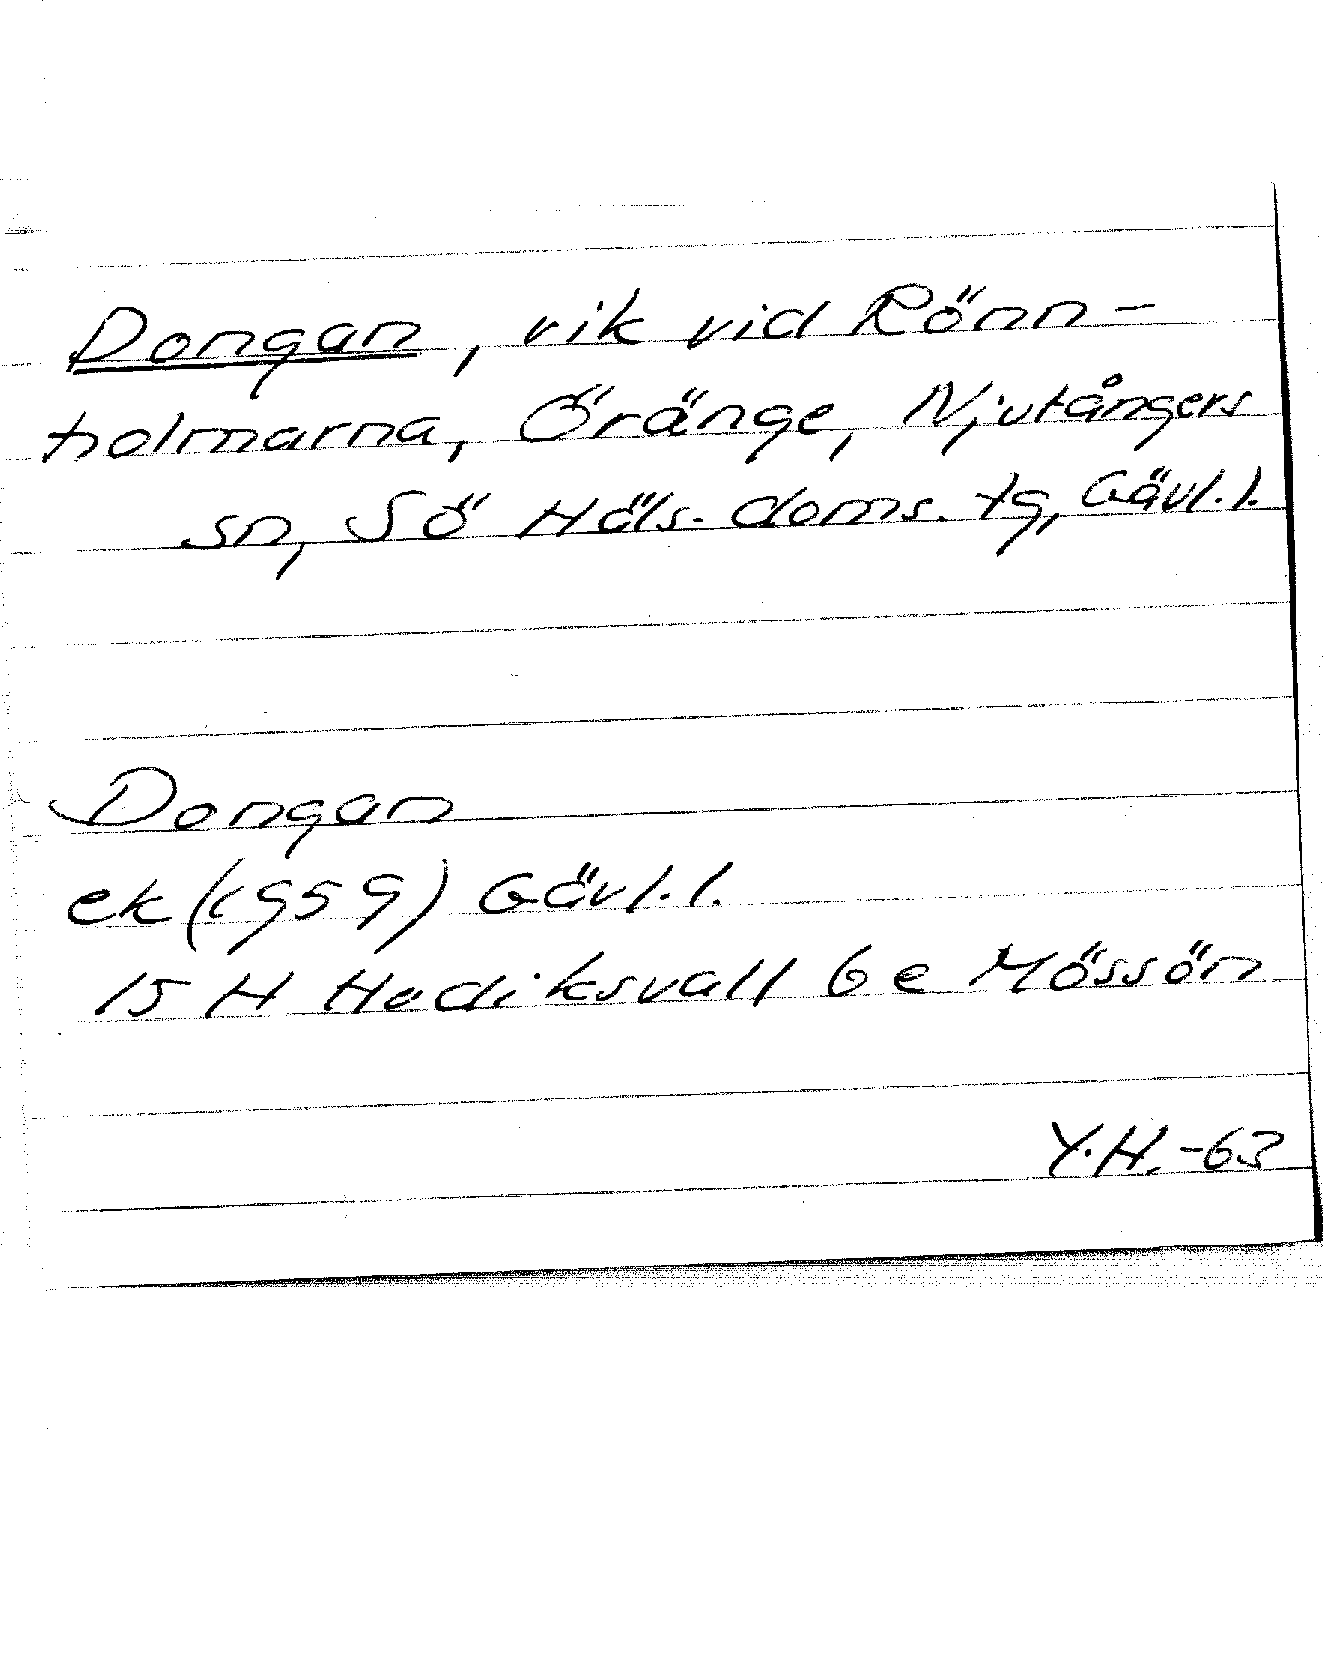 Dongan, vik vid Rönn-
holmarna, Öränge, Njutångers
sn, Sö Häls. doms. tg, Gävl. l.
Dongan
ek (1959) Gävl. l.
15 H Hudiksvall 6 e Mössön
Y.H. -63